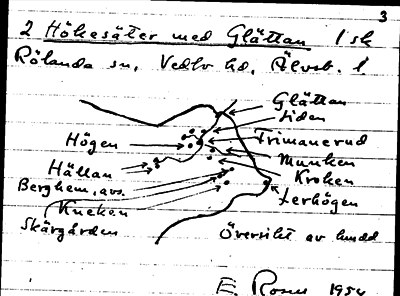 3
2 Hökesäter med Glättan 1 sk
Rölanda sn, Vedbo hd, Älvsb. l
Glättan
Liden
Högen
Trimanerud
Munken
Hällan
Kroken
Berghem, avs.
Kneken
Lerhögen
Skärgården
Översikt av
E. Rosen 1954